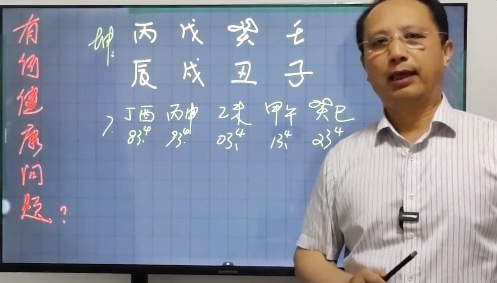 有何健康问题？
坤: 丙 戊 癸 壬
辰 戌 丑 子
7. 丁酉 丙申 乙未 甲午 癸巳
83.4 93.4 03.4 13.4 23.4